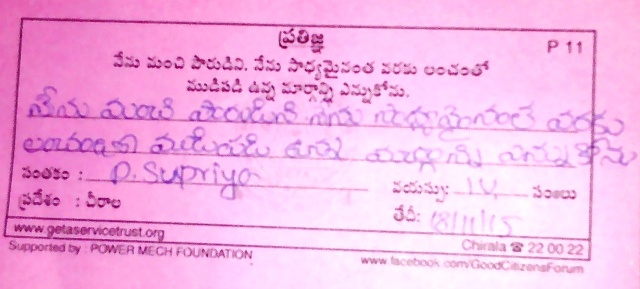 ప్రతిజ్ఞ
P 11
నేను మంచి పౌరుడిని. నేను సాధ్యమైనంత వరకు లంచంతో
ముడిపడి ఉన్న మార్గాన్ని ఎన్నుకోను.
నేను మంచి పౌరుడిని నేను సాధ్యమైనంత వరకు
లంచంతో ముడిపడి ఉన్న మార్గాన్ని ఎన్నుకోను
సంతకం : D. Supriya వయస్సు 14 సంలు
ప్రదేశం : చీరాల తేదీ: 18/11/15
www.getaservicetrust.org Chirala ☎ 22 00 22
Supported by : POWER MECH FOUNDATION www.facebook.com/GoodCitizensForum